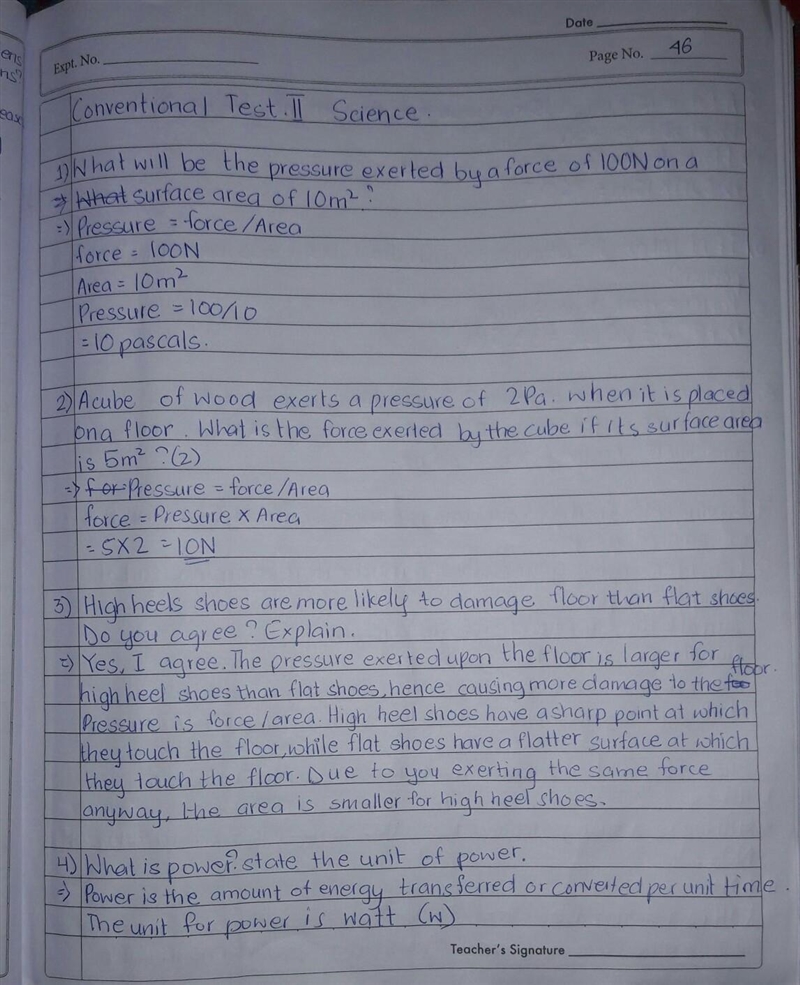 ens
ns?
ease
Date
Expt. No.
Page No. 46
Conventional Test. II Science.
1) What will be the pressure exerted by a force of 100N on a
=> What surface area of 10m²?
=> Pressure = force/Area
force = 100N
Area = 10m²
Pressure = 100/10
= 10 pascals.
2) A cube of wood exerts a pressure of 2Pa. when it is placed
on a floor. What is the force exerted by the cube if its surface area
is 5m²? (2)
=> for Pressure = force/Area
force = Pressure x Area
= 5X2 = 10N
3) High heels shoes are more likely to damage floor than flat shoes.
Do you agree? Explain.
=> Yes, I agree. The pressure exerted upon the floor is larger for
high heel shoes than flat shoes, hence causing more damage to the floor.
Pressure is force/area. High heel shoes have a sharp point at which
they touch the floor, while flat shoes have a flatter surface at which
they touch the floor. Due to you exerting the same force
anyway, the area is smaller for high heel shoes.
4) What is power? state the unit of power.
=> Power is the amount of energy transferred or converted per unit time.
The unit for power is watt (W)
Teacher's Signature